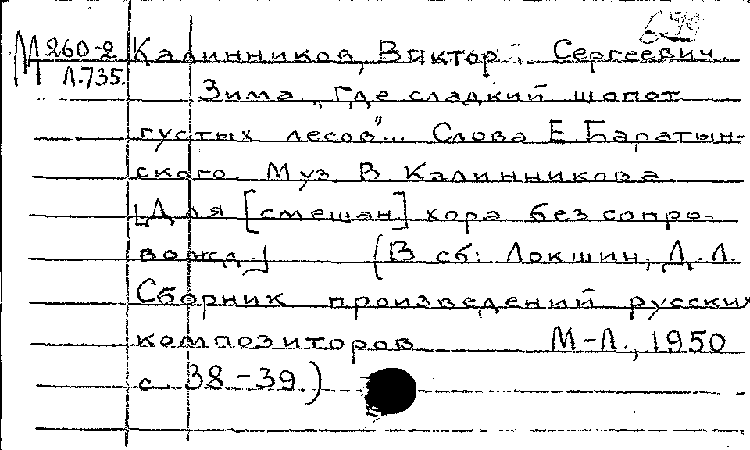 М 260-2 Калинников, Виктор Сергеевич
Л.735.
Зима „Где сладкий шопот
густых лесов"... Слова Е. Баратын-
ского. Муз. В. Калинникова
[Для [смешан] хора без сопро-
вожд.] (В сб: Локшин, Д. Л.
Сборник произведений русских
композиторов М-Л., 1950
с. 38-39.)